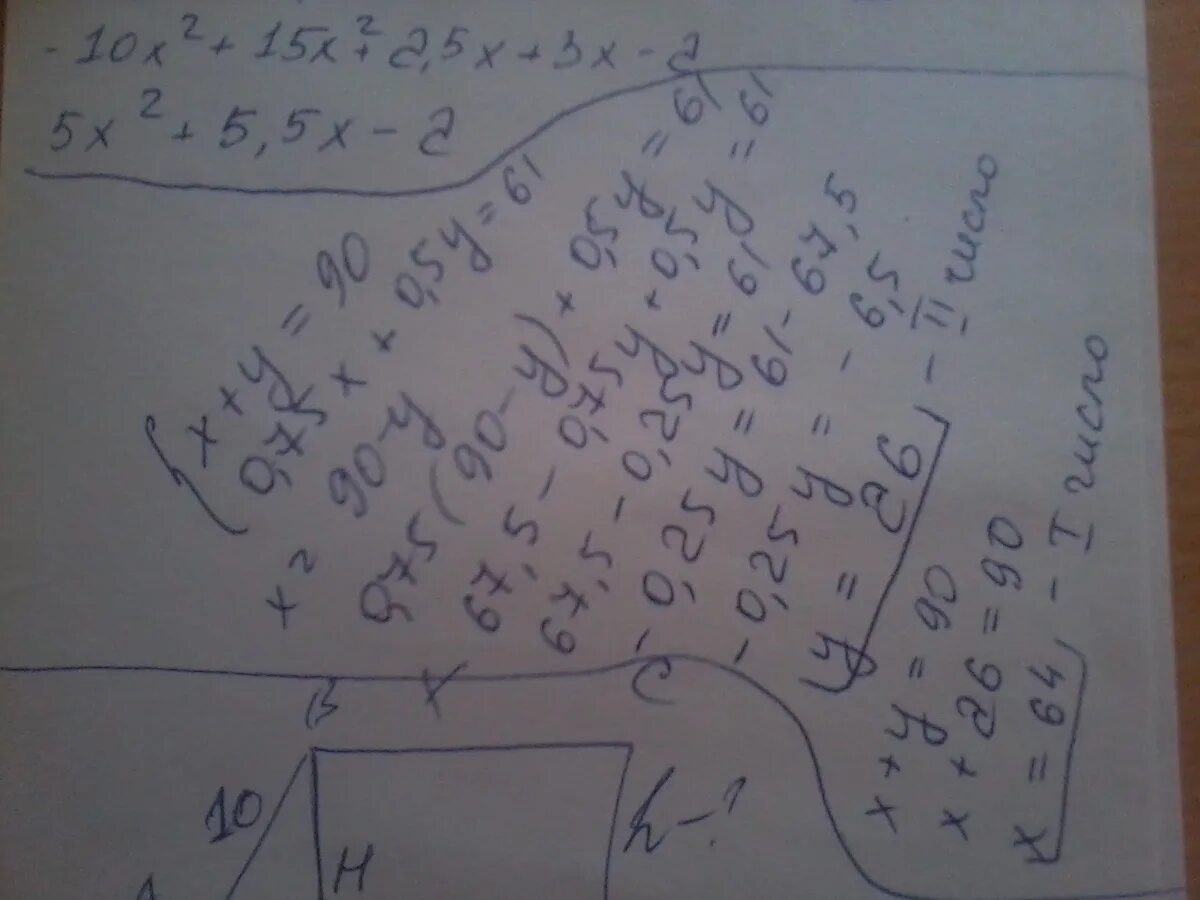 -10x² + 15x² + 2,5x + 3x - 2
5x² + 5,5x - 2
x + y = 90
0,75x + 0,5y = 61
x = 90 - y
0,75(90 - y) + 0,5y = 61
67,5 - 0,75y + 0,5y = 61
67,5 - 0,25y = 61
-0,25y = 61 - 67,5
-0,25y = -6,5
y = 26 - II число
x + y = 90
x + 26 = 90
x = 64 - I число
B x C
10
H
h-?